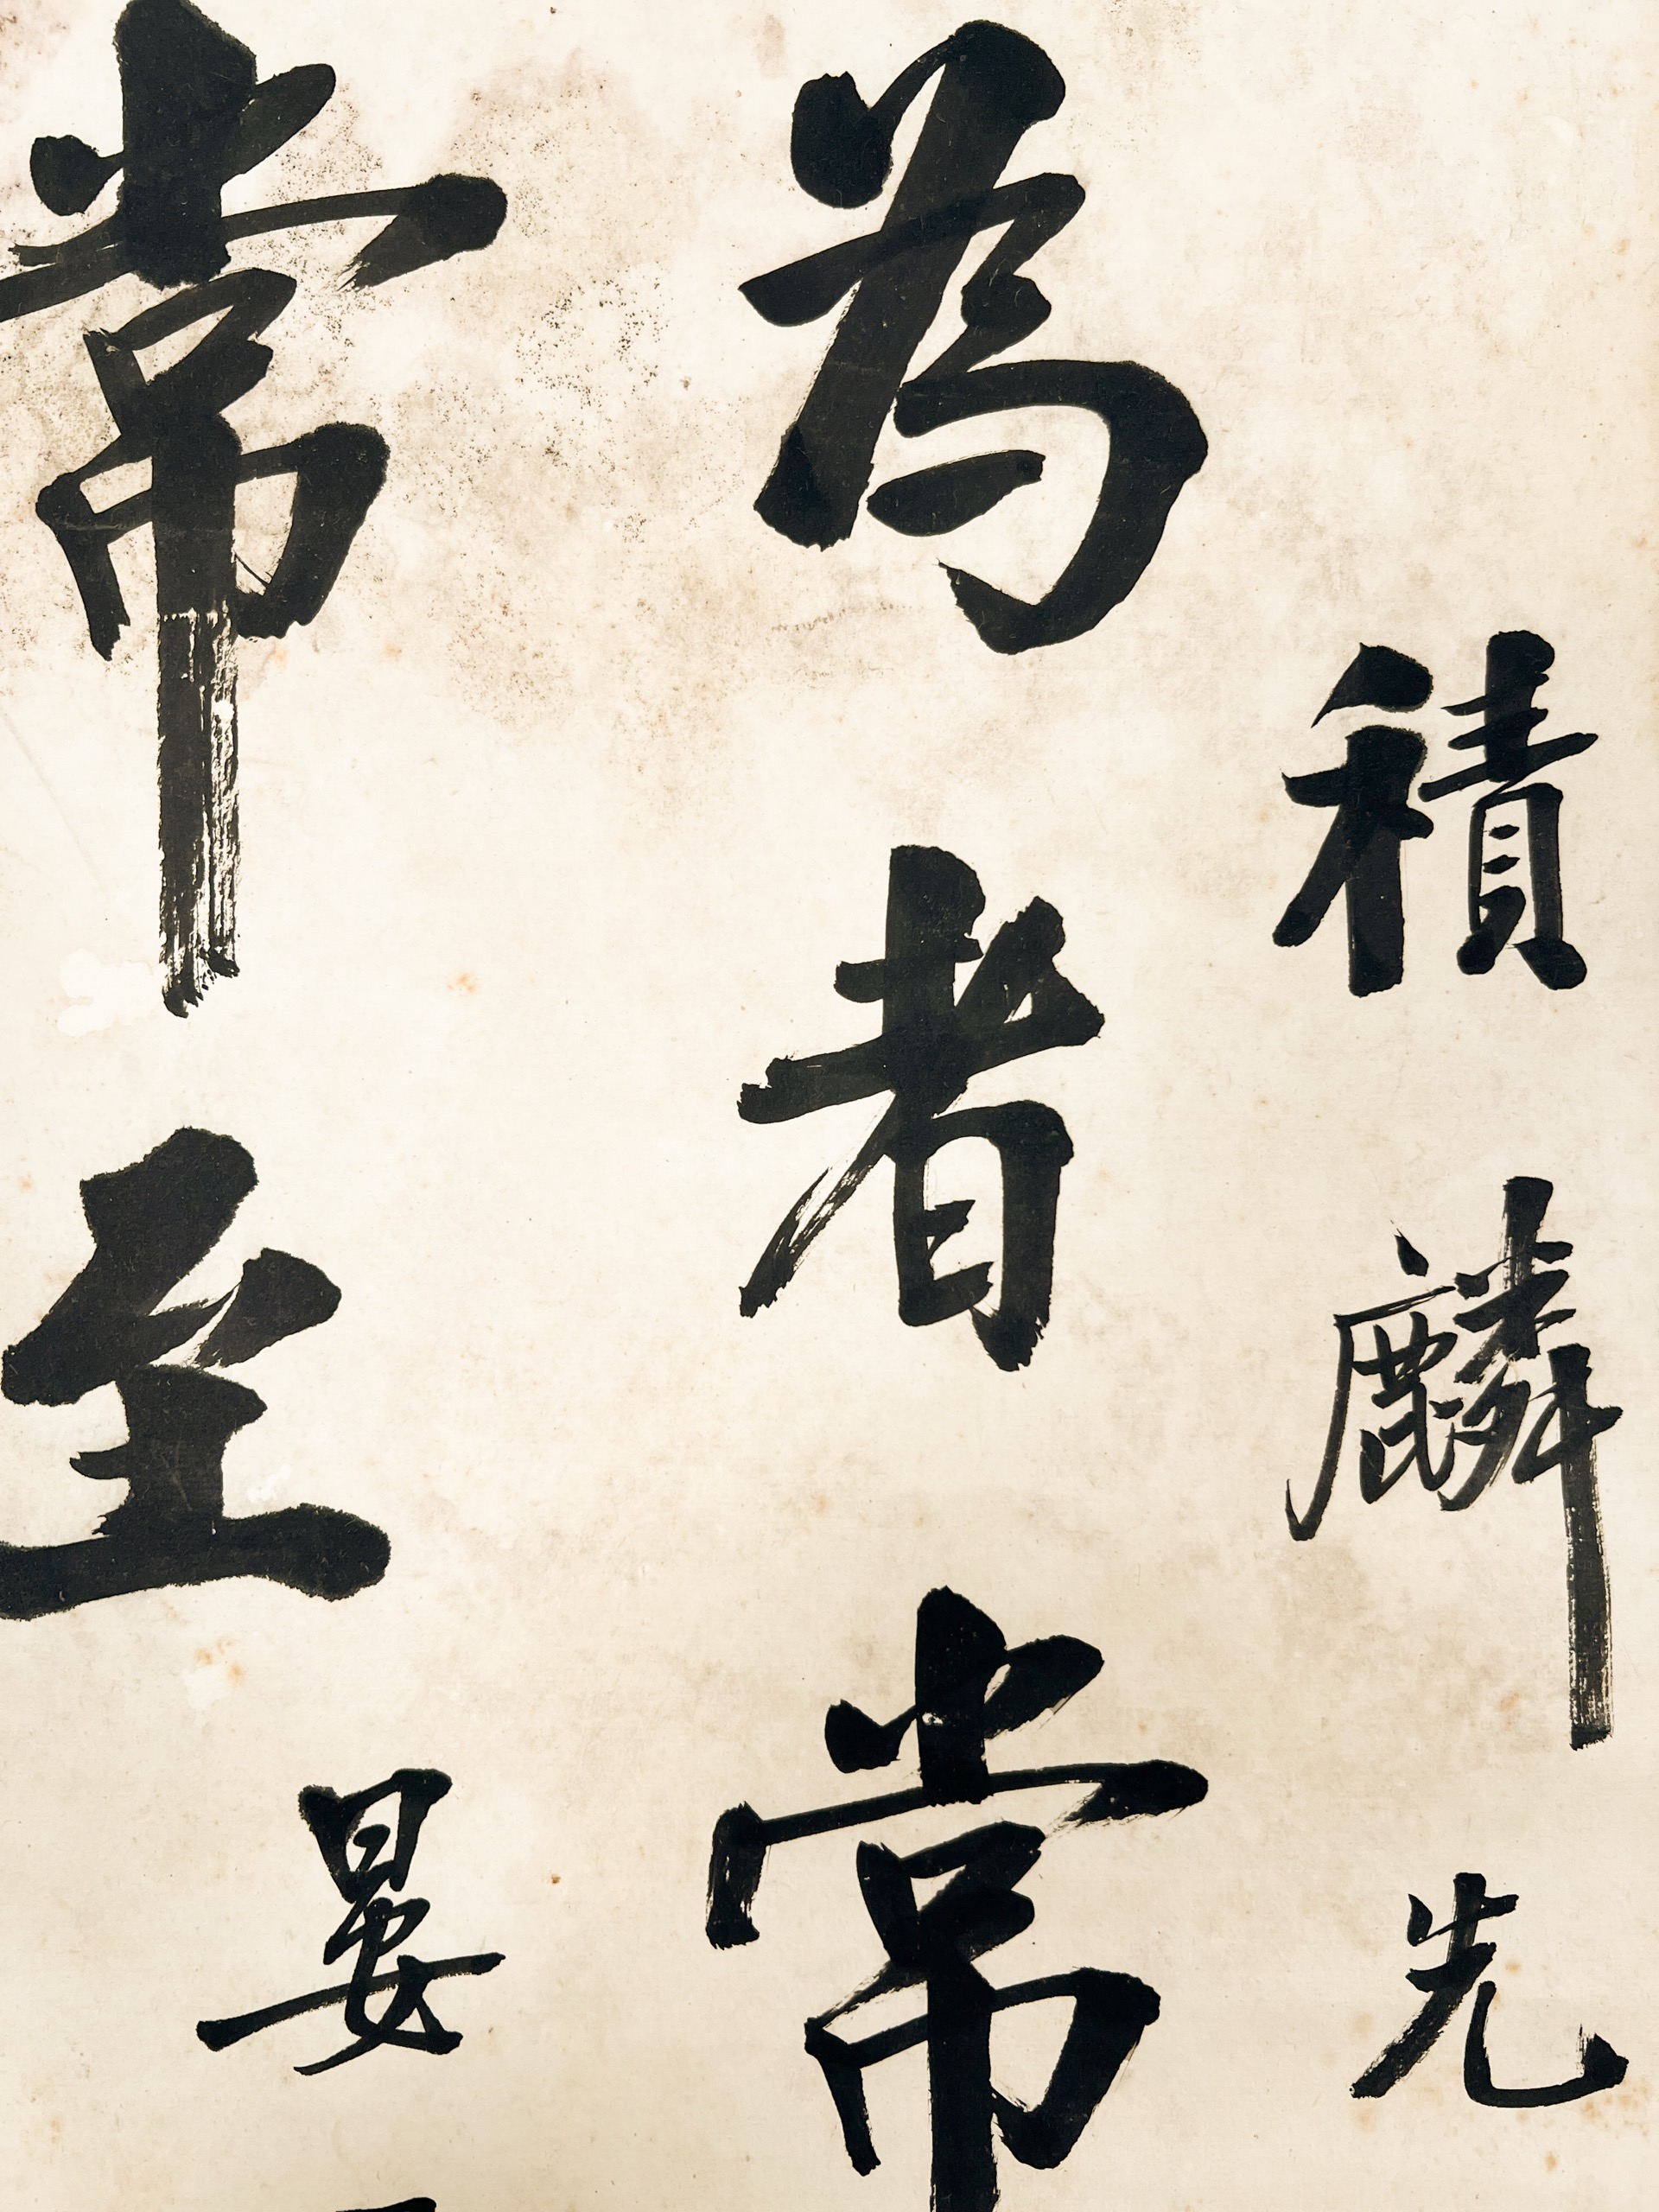 積麟先
為者常
常至
晏